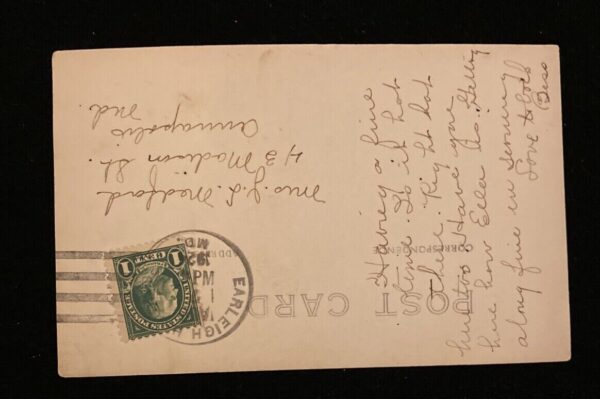 POST CARD
CORRESPONDENCE
Having a fine
time. Is it hot
there. Right hot
here too. Have you
how Ella is. Getting
along fine in
Love to both
Bess
ADDRESS
EARLEIGH
PM
192
MD.
UNITED STATES POSTAGE
1 CENT 1
Mrs. J. S. Medford
43 Madison St.
Annapolis
Md.